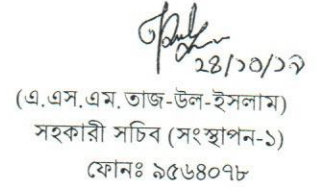 ২৪/১০/১৯
(এ.এস.এম.তাজ-উল-ইসলাম)
সহকারী সচিব (সংস্থাপন-১)
ফোনঃ ৯৫৬৪০৭৮